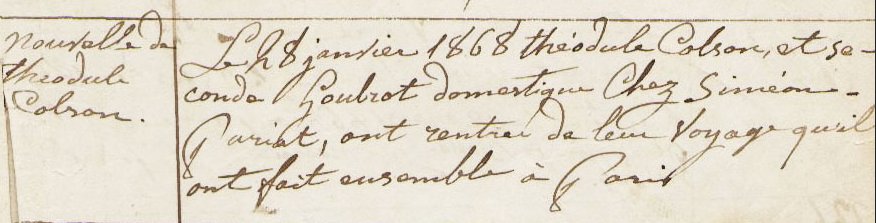 nouvelle de
théodule
Colson.
Le 28 janvier 1868 théodule Colson, et se-
conda Goubrot domestique Chez Siméon-
Pariat, ont rentrer de leur Voyage qu'il
ont fait ensemble à Paris